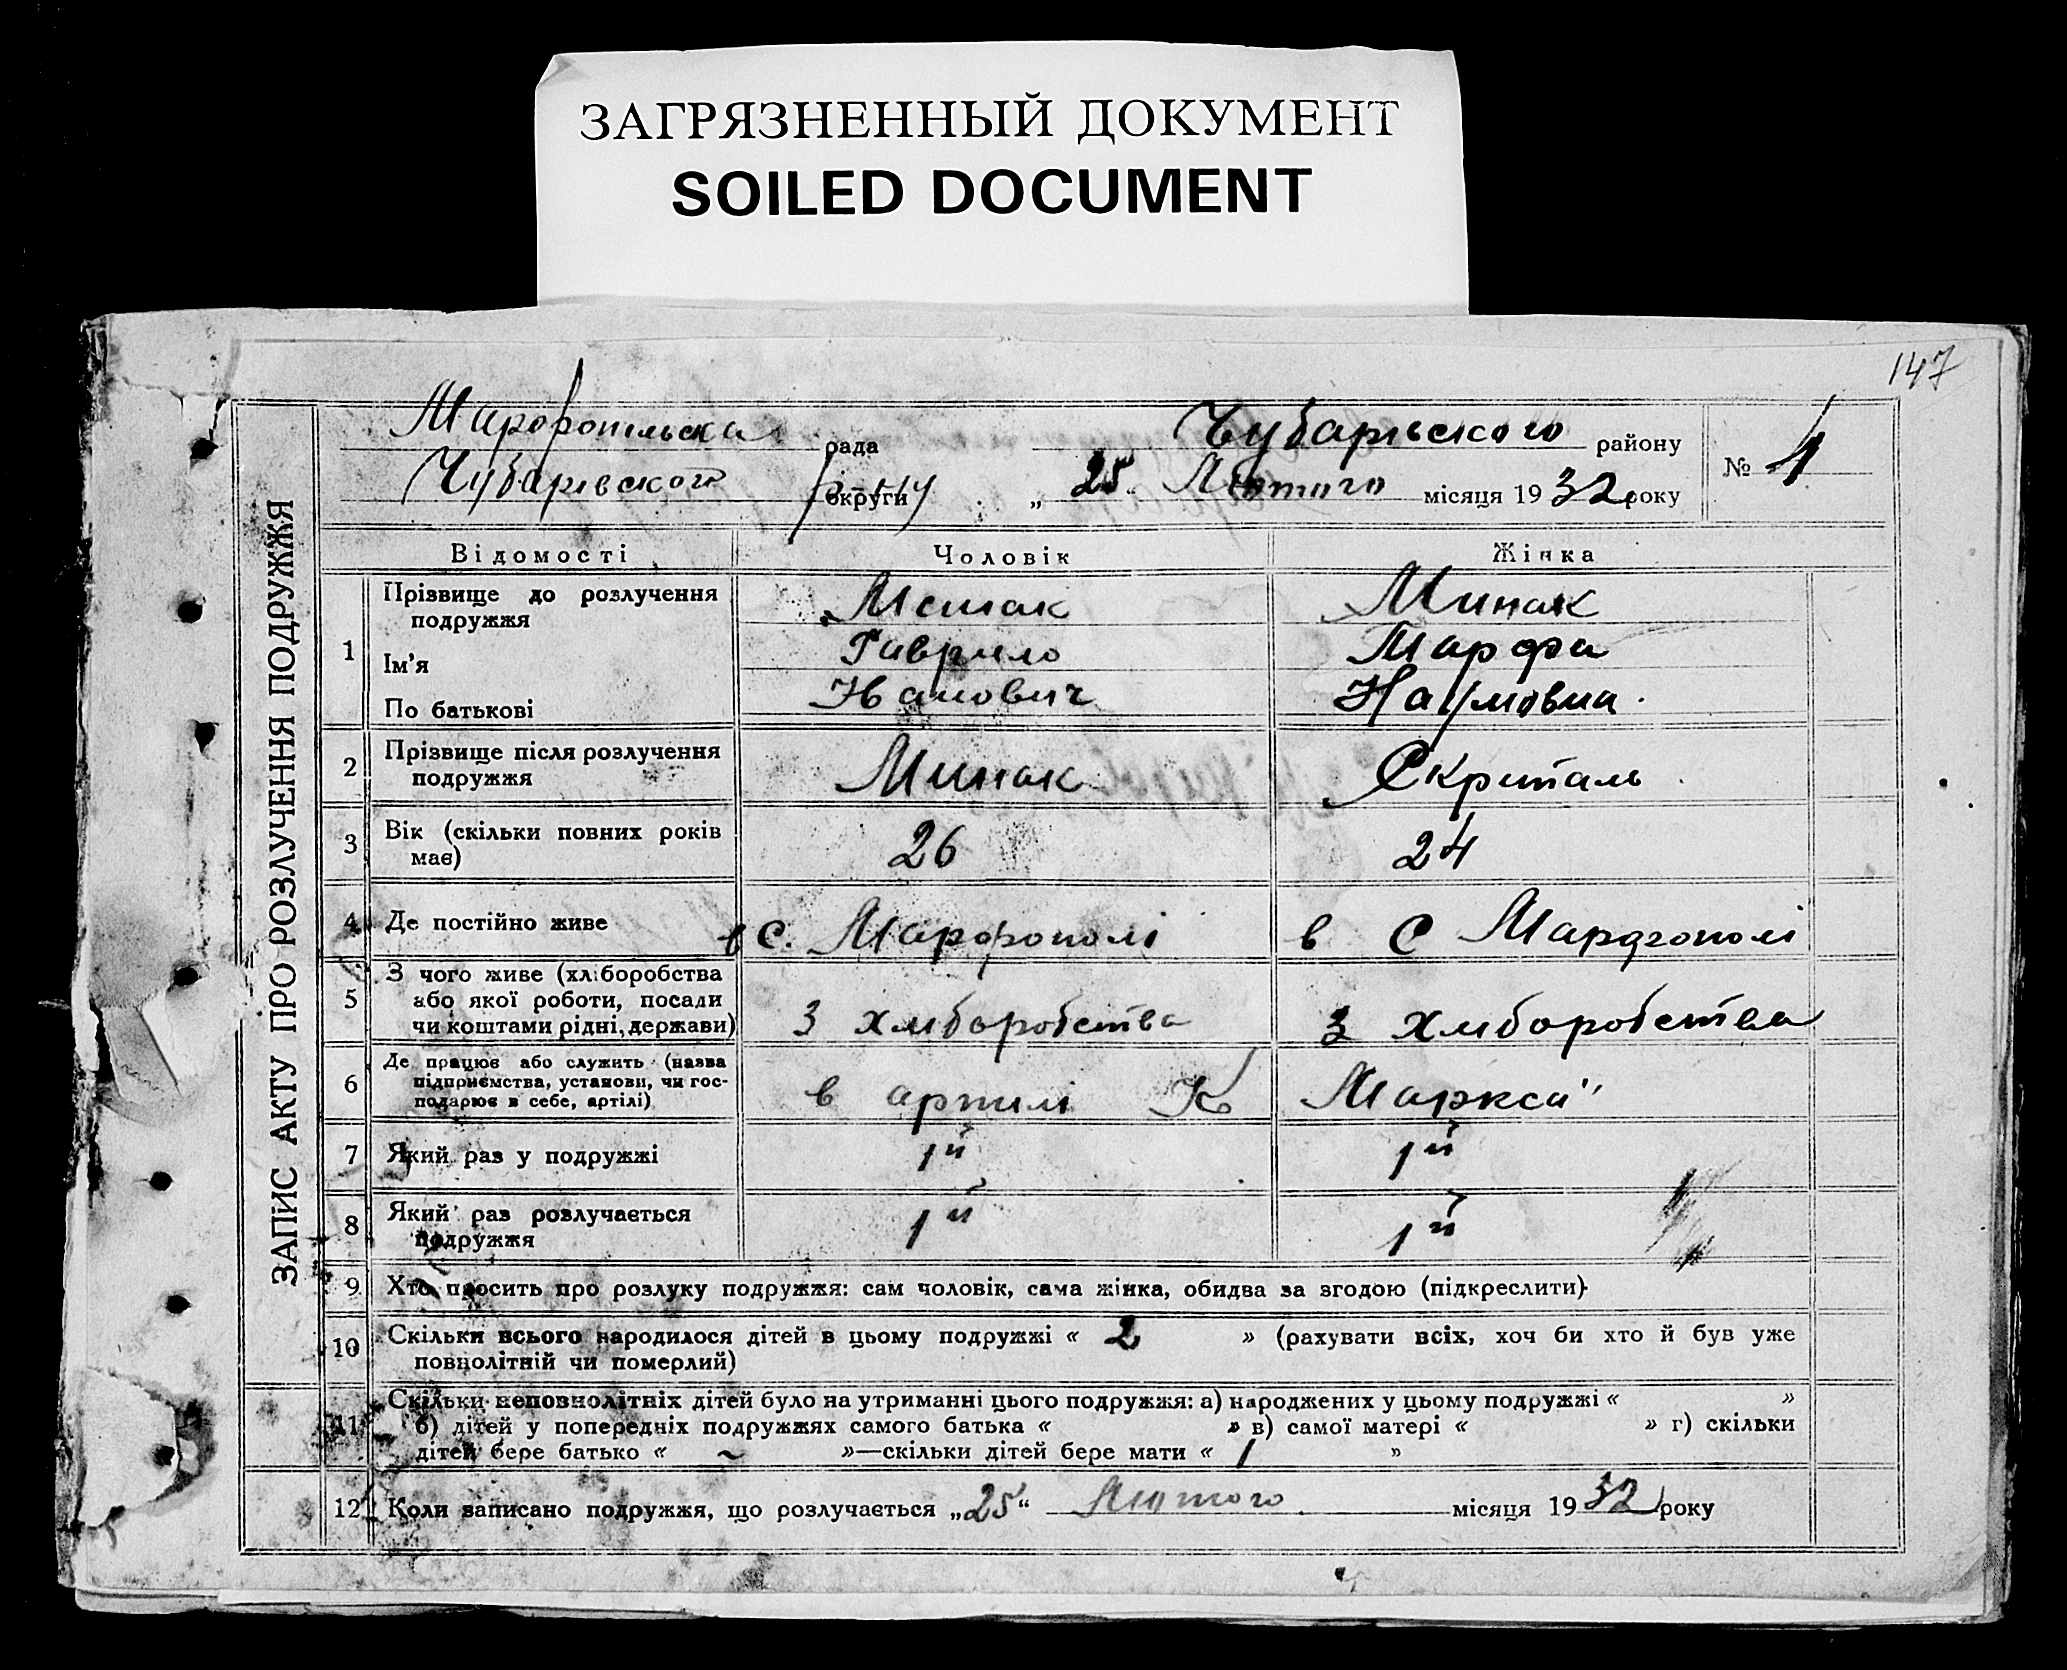 ЗАГРЯЗНЕННЫЙ ДОКУМЕНТ
SOILED DOCUMENT
147
ЗАПИС АКТУ ПРО РОЗЛУЧЕННЯ ПОДРУЖЖЯ
Марфопільска рада Чубарівского району
№ 1
Чубарівского округи „25“ Лютого місяця 1932 року
Відомості Чоловік Жінка
1 Прізвище до розлучення подружжя Минак Минак
Ім'я Гаврило Марфа
По батькові Іванович Наумовна
2 Прізвище після розлучення подружжя Минак Скрипаль
3 Вік (скільки повних років має) 26 24
4 Де постійно живе в с. Марфополі в с Марфополі
5 З чого живе (хліборобства або якої роботи, посади чи коштами рідні, держави) З хліборобства З хліборобства
6 Де працює або служить (назва підприємства, установи, чи господарює в себе, артілі) в артилі К Маркса"
7 Який раз у подружжі 1й 1й
8 Який раз розлучається подружжя 1й 1й
9 Хто просить про розлуку подружжя: сам чоловік, сама жінка, обидва за згодою (підкреслити)
10 Скільки всього народилося дітей в цьому подружжі « 2 » (рахувати всіх, хоч би хто й був уже
повнолітній чи померлий)
11 Скільки неповнолітніх дітей було на утриманні цього подружжя: а) народжених у цьому подружжі « »
б) дітей у попередніх подружжях самого батька « » в) самої матері « » г) скільки
дітей бере батько « ~ »—скільки дітей бере мати « 1 »
12 Коли записано подружжя, що розлучається „25“ Лютого місяця 1932 року